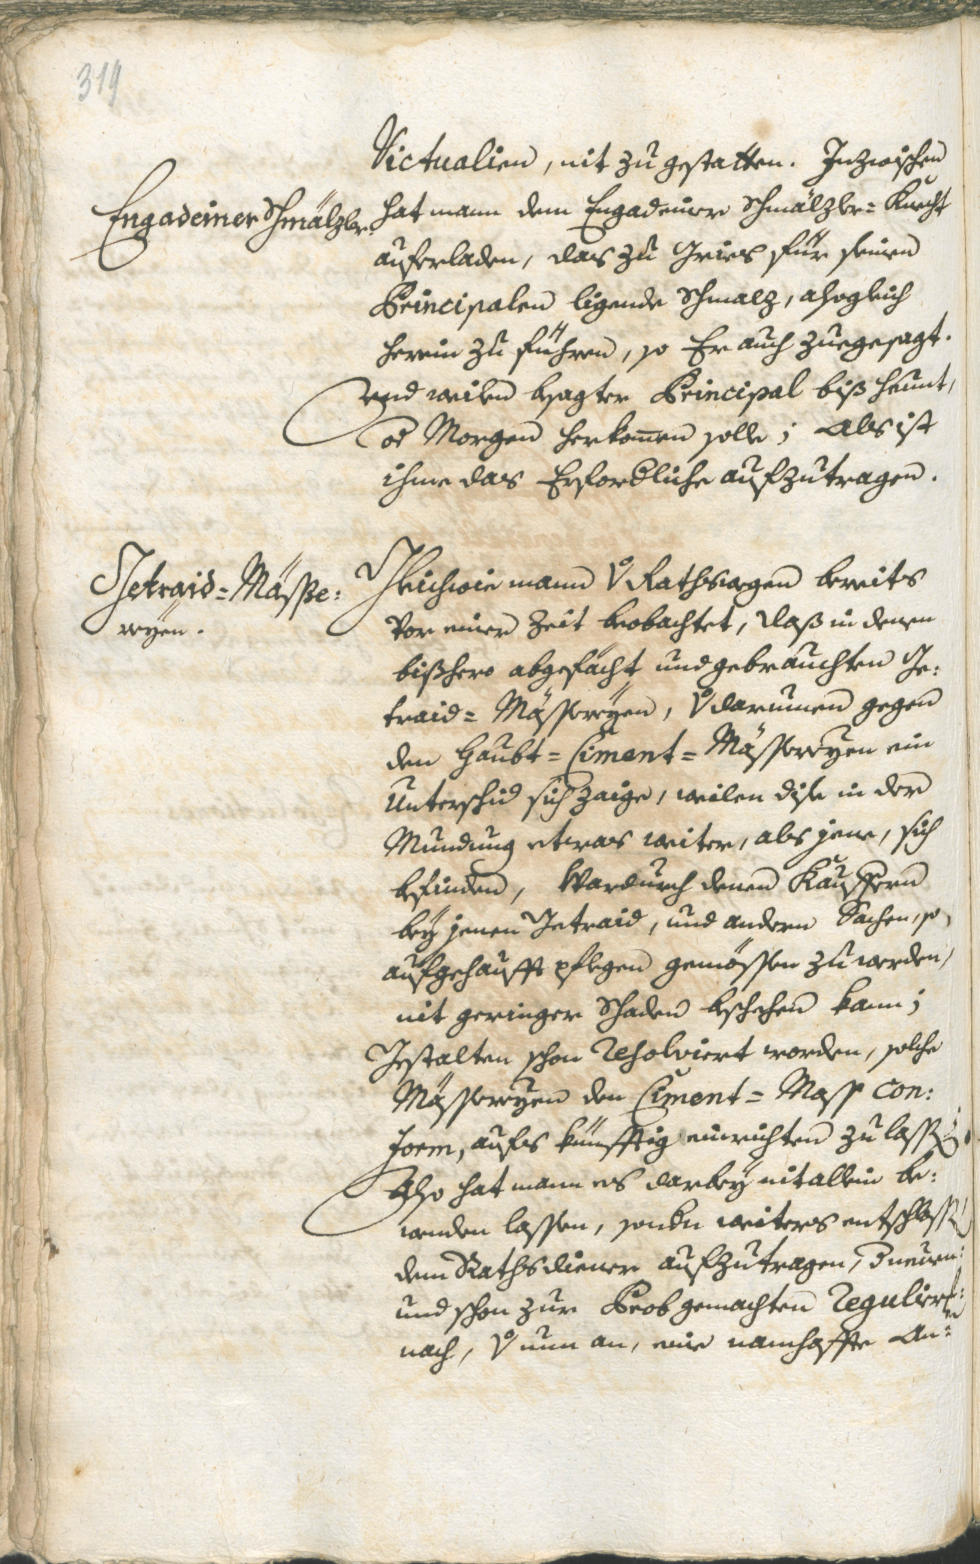 319
Victualien, nit zu gestatten. Inzwischen
Engadeiner Schmälzler.
hat mann dem Engadeiner Schmälzler= Knecht
auferladen, das zu Gries für seinen
Principalen ligende Schmalz, alsogleich
herein zu führen, so Er auch zuegesagt.
und weilen besagter Principal biß heunt,
od Morgen herkomen solle; Als ist
ihme das Erforderliche aufzutragen.
Getraid=Mässe:
reyen.
Gleichwie mann v Rathswegen bereits
vor einer Zeit beobachtet, daß in denen
bißhero abgefächt und gebrauchten Ge:
traid= Mässereyen, v darumen gegen
den Haubt=Ciment=Mässereyen ein
Unterschid sich zaige, weilen dise in der
Mundung etwas weiter, als jene, sich
befinden, Wardurch denen Kauffern
bey jenen Getraid, und andern Sachen, so
aufgehaufft pflegen gemössen zu werden,
nit geringer Schaden beschehen kann;
Gestalten schon resolviert worden, solche
Mässereyen den Ciment= Mass con:
form, aufs künfftig einrichten zu lassen.
Also hat mann es darbey nit allein be:
wenden lassen, sondern weiters entschlossen
dem Rathsdiener aufzutragen, 3 neuen:
und schon zur Prob gemachten Regulier:
nach, v nun an, eine namhaffte An=